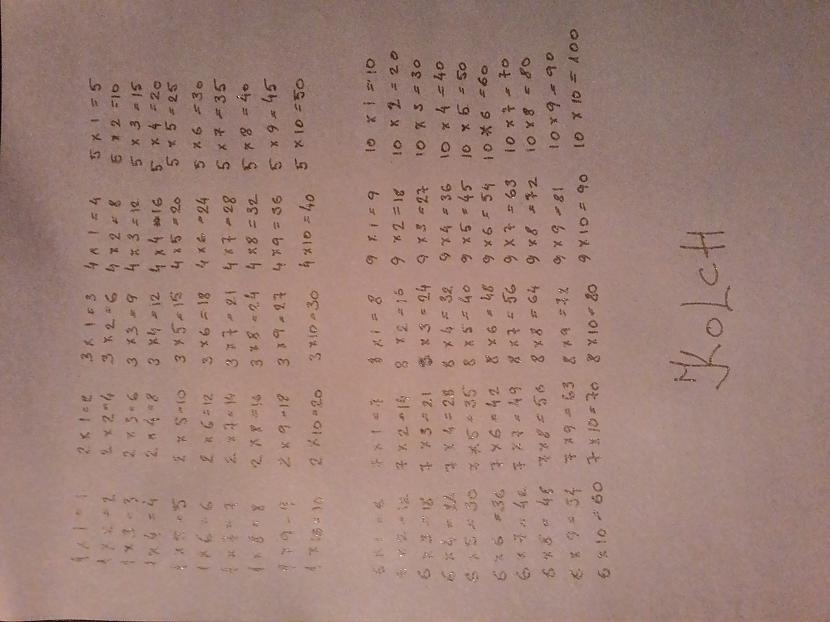 1 x 1 = 1 2 x 1 = 2 3 x 1 = 3 4 x 1 = 4 5 x 1 = 5
1 x 2 = 2 2 x 2 = 4 3 x 2 = 6 4 x 2 = 8 5 x 2 = 10
1 x 3 = 3 2 x 3 = 6 3 x 3 = 9 4 x 3 = 12 5 x 3 = 15
1 x 4 = 4 2 x 4 = 8 3 x 4 = 12 4 x 4 = 16 5 x 4 = 20
1 x 5 = 5 2 x 5 = 10 3 x 5 = 15 4 x 5 = 20 5 x 5 = 25
1 x 6 = 6 2 x 6 = 12 3 x 6 = 18 4 x 6 = 24 5 x 6 = 30
1 x 7 = 7 2 x 7 = 14 3 x 7 = 21 4 x 7 = 28 5 x 7 = 35
1 x 8 = 8 2 x 8 = 16 3 x 8 = 24 4 x 8 = 32 5 x 8 = 40
1 x 9 = 9 2 x 9 = 18 3 x 9 = 27 4 x 9 = 36 5 x 9 = 45
1 x 10 = 10 2 x 10 = 20 3 x 10 = 30 4 x 10 = 40 5 x 10 = 50
6 x 1 = 6 7 x 1 = 7 8 x 1 = 8 9 x 1 = 9 10 x 1 = 10
6 x 2 = 12 7 x 2 = 14 8 x 2 = 16 9 x 2 = 18 10 x 2 = 20
6 x 3 = 18 7 x 3 = 21 8 x 3 = 24 9 x 3 = 27 10 x 3 = 30
6 x 4 = 24 7 x 4 = 28 8 x 4 = 32 9 x 4 = 36 10 x 4 = 40
6 x 5 = 30 7 x 5 = 35 8 x 5 = 40 9 x 5 = 45 10 x 5 = 50
6 x 6 = 36 7 x 6 = 42 8 x 6 = 48 9 x 6 = 54 10 x 6 = 60
6 x 7 = 42 7 x 7 = 49 8 x 7 = 56 9 x 7 = 63 10 x 7 = 70
6 x 8 = 48 7 x 8 = 56 8 x 8 = 64 9 x 8 = 72 10 x 8 = 80
6 x 9 = 54 7 x 9 = 63 8 x 9 = 72 9 x 9 = 81 10 x 9 = 90
6 x 10 = 60 7 x 10 = 70 8 x 10 = 80 9 x 10 = 90 10 x 10 = 100